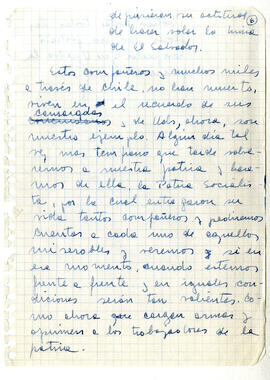 6
de hacer volar la mina
de El Salvador.
Estos compañeros y muchos miles
a través de Chile, no han muerto,
viven en el recuerdo de sus
camaradas
y de ellos, ahora, son
nuestro ejemplo. Algun dia tal
vez, mas temprano que tarde volve
remos a nuestra patria y hare
mos de ella, la Patria Socialis
ta, por la cual entregaron su
vida tantos compañeros y pediremos
cuentas a cada uno de aquellos
miserables y veremos si en
ese momento, cuando estemos
frente a frente y en iguales con
diciones seran tan valientes. Co
mo ahora que cargan armas y
oprimen a los trabajadores de la
patria.